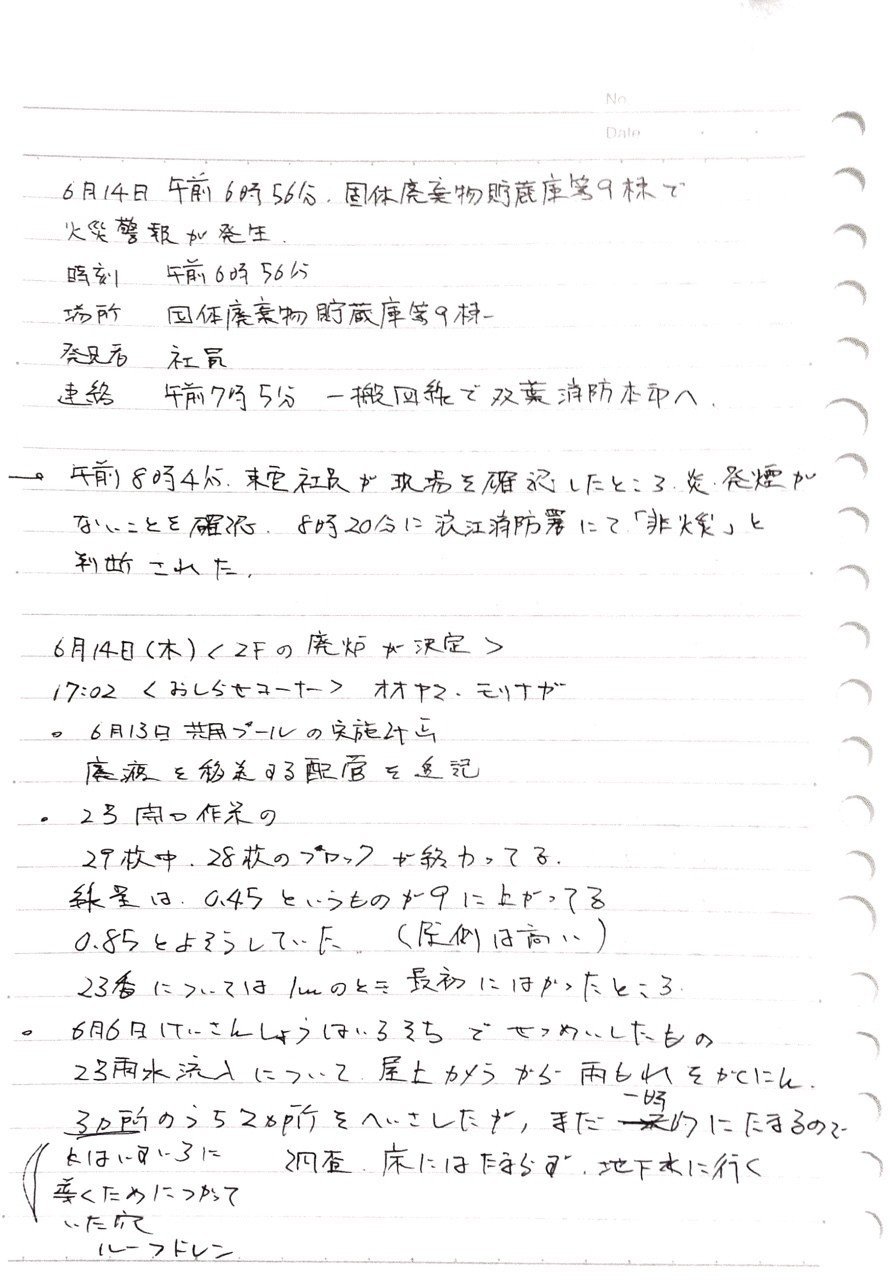 No.
Date
6月14日 午前6時56分、固体廃棄物貯蔵庫第9棟で
火災警報が発生.
時刻 午前6時56分
場所 固体廃棄物貯蔵庫第9棟
発見者 社員
連絡 午前7時5分 一般回線で双葉消防本部へ.
→ 午前8時4分、東電社員が現場を確認したところ、炎・発煙が
ないことを確認、8時20分に浪江消防署にて「非火災」と
判断された.
6月14日(木)<2Fの廃炉が決定>
17:02 <おしらせコーナー> オオヤマ、モリナガ
・6月13日 共用プールの実施計画
廃液を移送する配管を追記
・2号開口作業の
29枚中、28枚のブロックが終わってる.
線量は、0.45というものが9に上がってる
0.85とよそうしていた (圧倒は高い)
23番については1mのとき最初にはかったところ
・6月6日 けいさんしょうはいろそちでせつめいしたもの
2号雨水流入について、屋上カメラから雨もれをかくにん.
3カ所のうち2カ所をへいさしたが, まだ一時的にたまるので
調査、床にはたまらず、地下水に行く
とはいすいろに
導くためにつかって
いた穴
ルーフドレン